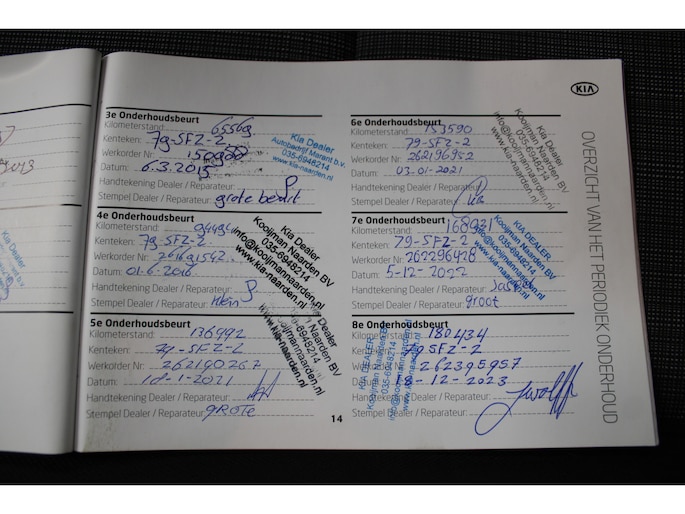 KIA
OVERZICHT VAN HET PERIODIEK ONDERHOUD
3e Onderhoudsbeurt
Kilometerstand: 65569
Kenteken: 79-SFZ-2
Werkorder Nr
Datum: 6.3.2015
Handtekening Dealer / Reparateur:
Stempel Dealer / Reparateur: grote beurt
Kia Dealer
Autobedrijf Marant b.v.
035-6948214
www.kia-naarden.nl
4e Onderhoudsbeurt
Kilometerstand:
Kenteken: 79-SFZ-2
Werkorder Nr:
Datum: 01.6.2016
Handtekening Dealer / Reparateur:
Stempel Dealer / Reparateur: klein
Kia Dealer
Kooijman Naarden BV
035-6948214
info@kooijmannaarden.nl
www.kia-naarden.nl
5e Onderhoudsbeurt
Kilometerstand: 136992
Kenteken: 79-SFZ-2
Werkorder Nr: 262190267
Datum: 18-1-2021
Handtekening Dealer / Reparateur:
Stempel Dealer / Reparateur: GROTE
14
6e Onderhoudsbeurt
Kilometerstand: 153590
Kenteken: 79-SFZ-2
Werkorder Nr: 262196952
Datum: 03-01-2021
Handtekening Dealer / Reparateur:
Stempel Dealer / Reparateur:
Kia Dealer
Kooijman Naarden BV
035-6948214
info@kooijmannaarden.nl
www.kia-naarden.nl
7e Onderhoudsbeurt
Kilometerstand: 168931
Kenteken: 79-SFZ-2
Werkorder Nr: 262296428
Datum: 5-12-2022
Handtekening Dealer / Reparateur:
Stempel Dealer / Reparateur: groot
KIA DEALER
Kooijman Naarden BV
035-6948214
info@kooijmannaarden.nl
www.kia-naarden.nl
8e Onderhoudsbeurt
Kilometerstand: 180434
Kenteken: 79 SFZ-2
Werkorder Nr: 262395957
Datum: 18-12-2023
Handtekening Dealer / Reparateur:
Stempel Dealer / Reparateur:
KIA DEALER
Kooijman Naarden BV
035-6948214
info@kooijmannaarden.nl
www.kia-naarden.nl